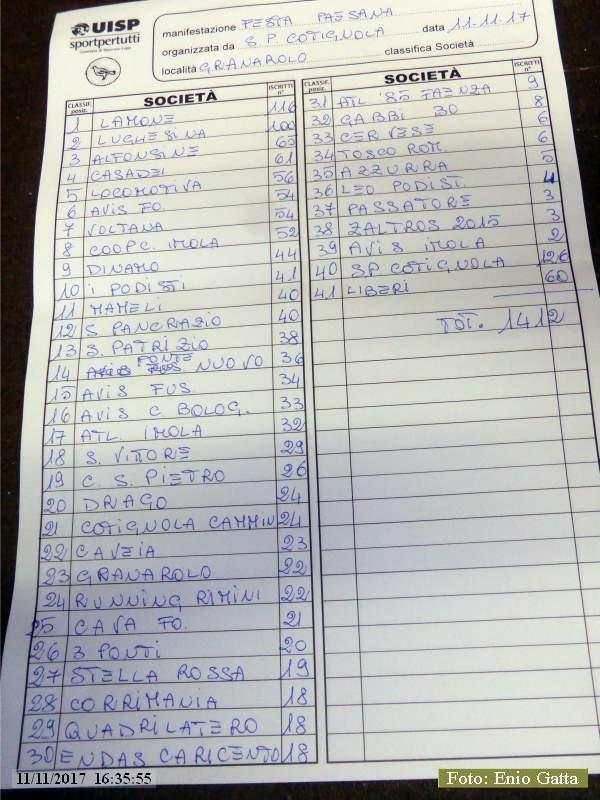 UISP
sportpertutti
manifestazione FESTA PAESANA
organizzata da S.P. COTIGNOLA data 11.11.17
località GRANAROLO classifica Società
CLASSIF. posiz. SOCIETÀ ISCRITTI n°
1 LAMONE 116
2 LUGHESINA 100
3 ALFONSINE 65
4 CASADEI 61
5 LOCOMOTIVA 56
6 AVIS FO. 54
7 VOLTANA 54
8 COOP C. IMOLA 52
9 DINAMO 44
10 I PODISTI 41
11 MAMELI 40
12 S. PANCRAZIO 40
13 S. PATRIZIO 38
14 PONTE NUOVO 36
15 AVIS FUS 34
16 AVIS C. BOLOG. 33
17 ATL. IMOLA 32
18 S. VITTORE 29
19 C. S. PIETRO 26
20 DRAGO 24
21 COTIGNOLA CAMMIN 24
22 CAVEIA 23
23 GRANAROLO 22
24 RUNNING RIMINI 22
25 CAVA FO. 21
26 3 PONTI 20
27 STELLA ROSSA 19
28 CORRIMANIA 18
29 QUADRILATERO 18
30 ENDAS CARICENTO 18
CLASSIF. posiz. SOCIETÀ ISCRITTI n°
31 ATL '85 FAENZA 9
32 GABBI 30 8
33 CERVESE 6
34 TOSCO ROM. 6
35 AZZURRA 5
36 LEO PODIST. 4
37 PASSATORE 3
38 ZALTROS 2015 3
39 AVIS IMOLA 2
40 SP COTIGNOLA 126
41 LIBERI 60
TOT. 1412
11/11/2017 16:35:55
Foto: Enio Gatta